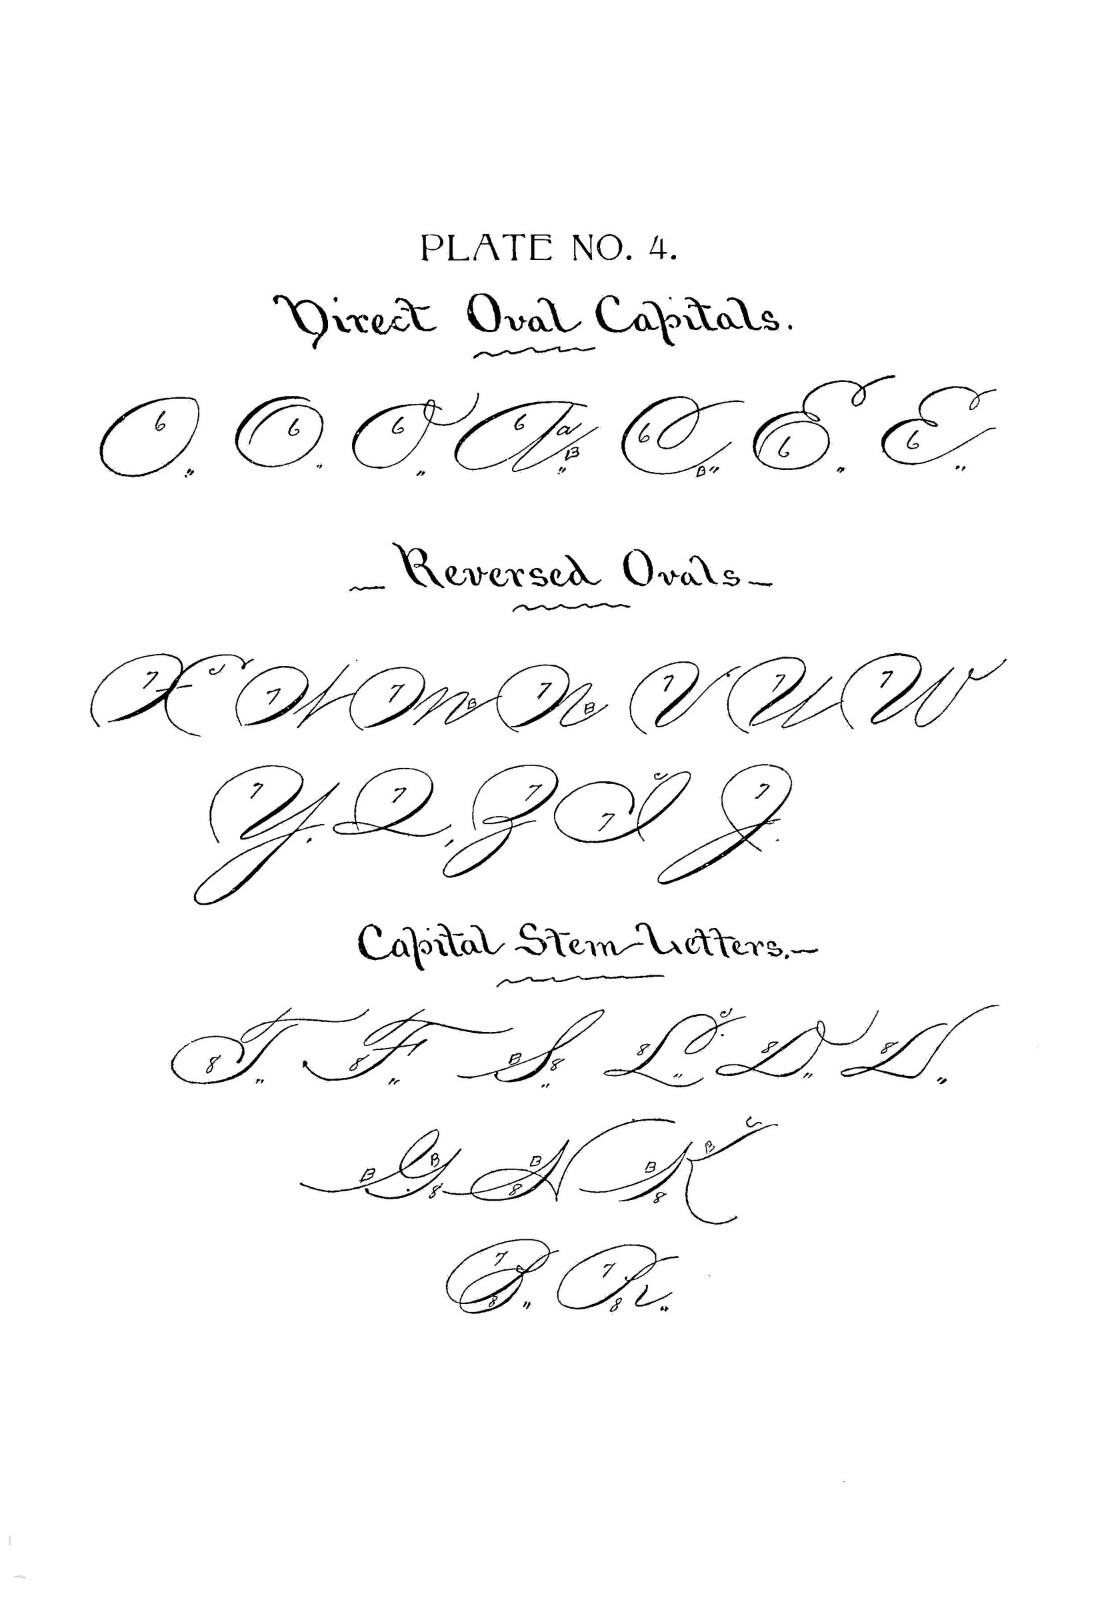 PLATE NO. 4.
Direct Oval Capitals.
O. O. O. A. C. E. E.
Reversed Ovals
X H M N V U W
Y. Q, Z I J.
Capital Stem-Letters.
T. F. S. L. D. D.
G H K
B. R.